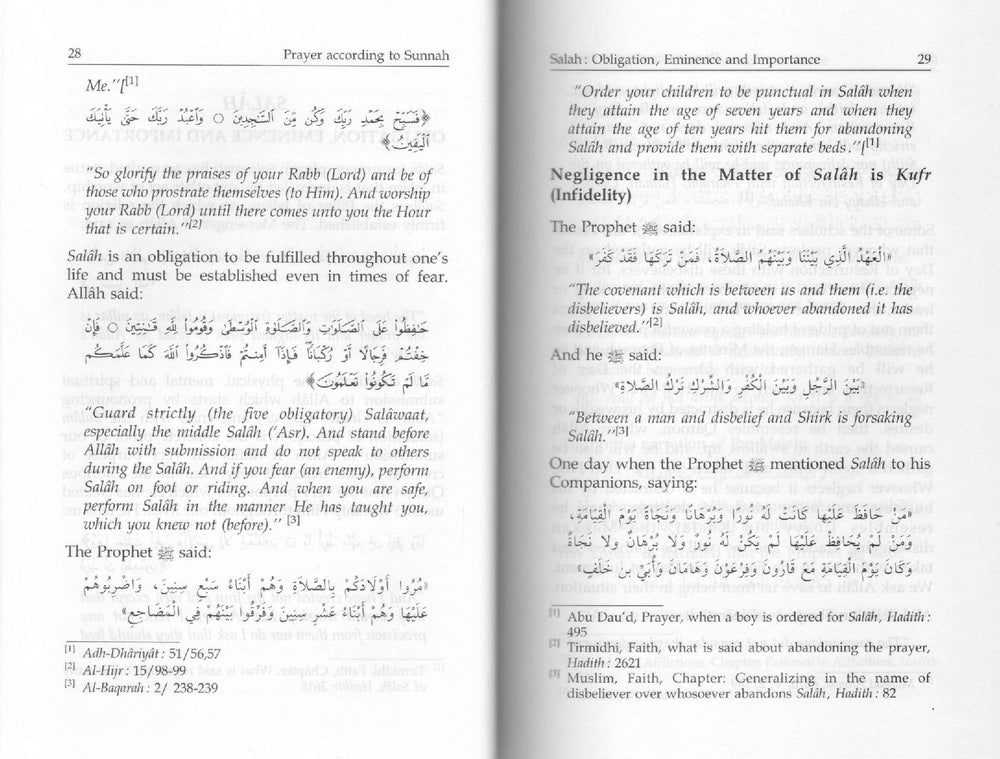 28 Prayer according to Sunnah
Me."[[1]
﴿فَسَبِّحْ بِحَمْدِ رَبِّكَ وَكُن مِّنَ ٱلسَّٰجِدِينَ ○ وَٱعْبُدْ رَبَّكَ حَتَّىٰ يَأْنِيَكَ
ٱلْيَقِينُ﴾
"So glorify the praises of your Rabb (Lord) and be of
those who prostrate themselves (to Him). And worship
your Rabb (Lord) until there comes unto you the Hour
that is certain."[2]
Salâh is an obligation to be fulfilled throughout one's
life and must be established even in times of fear.
Allâh said:
حَٰفِظُوا۟ عَلَى ٱلصَّلَوَٰتِ وَٱلصَّلَوٰةِ ٱلْوُسْطَىٰ وَقُومُوا۟ لِلَّهِ قَٰنِتِينَ ○ فَإِنْ
خِفْتُمْ فَرِجَالًا أَوْ رُكْبَانًا فَإِذَآ أَمِنتُمْ فَٱذْكُرُوا۟ ٱللَّهَ كَمَا عَلَّمَكُم
مَّا لَمْ تَكُونُوا۟ تَعْلَمُونَ﴾
"Guard strictly (the five obligatory) Salâwaat,
especially the middle Salâh ('Asr). And stand before
Allâh with submission and do not speak to others
during the Salâh. And if you fear (an enemy), perform
Salâh on foot or riding. And when you are safe,
perform Salâh in the manner He has taught you,
which you knew not (before)." [3]
The Prophet ﷺ said:
«مُرُوا أَوْلَادَكُمْ بِالصَّلَاةِ وَهُمْ أَبْنَاءُ سَبْعِ سِنِينَ، وَاضْرِبُوهُمْ
عَلَيْهَا وَهُمْ أَبْنَاءُ عَشْرِ سِنِينَ وَفَرِّقُوا بَيْنَهُمْ فِي الْمَضَاجِعِ»
[1] Adh-Dhâriyât : 51/56,57
[2] Al-Hijr : 15/98-99
[3] Al-Baqarah : 2/ 238-239
Salah : Obligation, Eminence and Importance 29
"Order your children to be punctual in Salâh when
they attain the age of seven years and when they
attain the age of ten years hit them for abandoning
Salâh and provide them with separate beds."[[1]
Negligence in the Matter of Salâh is Kufr
(Infidelity)
The Prophet ﷺ said:
«الْعَهْدُ الَّذِي بَيْنَنَا وَبَيْنَهُمُ الصَّلَاةُ، فَمَنْ تَرَكَهَا فَقَدْ كَفَرَ»
"The covenant which is between us and them (i.e. the
disbelievers) is Salâh, and whoever abandoned it has
disbelieved."[2]
And he ﷺ said:
«بَيْنَ الرَّجُلِ وَبَيْنَ الْكُفْرِ وَالشِّرْكِ تَرْكُ الصَّلَاةِ»
"Between a man and disbelief and Shirk is forsaking
Salâh."[3]
One day when the Prophet ﷺ mentioned Salâh to his
Companions, saying:
«مَنْ حَافَظَ عَلَيْهَا كَانَتْ لَهُ نُورًا وَبُرْهَانًا وَنَجَاةً يَوْمَ الْقِيَامَةِ،
وَمَنْ لَمْ يُحَافِظْ عَلَيْهَا لَمْ يَكُنْ لَهُ نُورٌ وَلَا بُرْهَانٌ وَلَا نَجَاةٌ
وَكَانَ يَوْمَ الْقِيَامَةِ مَعَ قَارُونَ وَفِرْعَوْنَ وَهَامَانَ وَأُبَيِّ بْنِ خَلَفٍ»
[1] Abu Dau'd, Prayer, when a boy is ordered for Salâh, Hadith :
495
[2] Tirmidhi, Faith, what is said about abandoning the prayer,
Hadith : 2621
[3] Muslim, Faith, Chapter: Generalizing in the name of
disbeliever over whosoever abandons Salâh, Hadith : 82